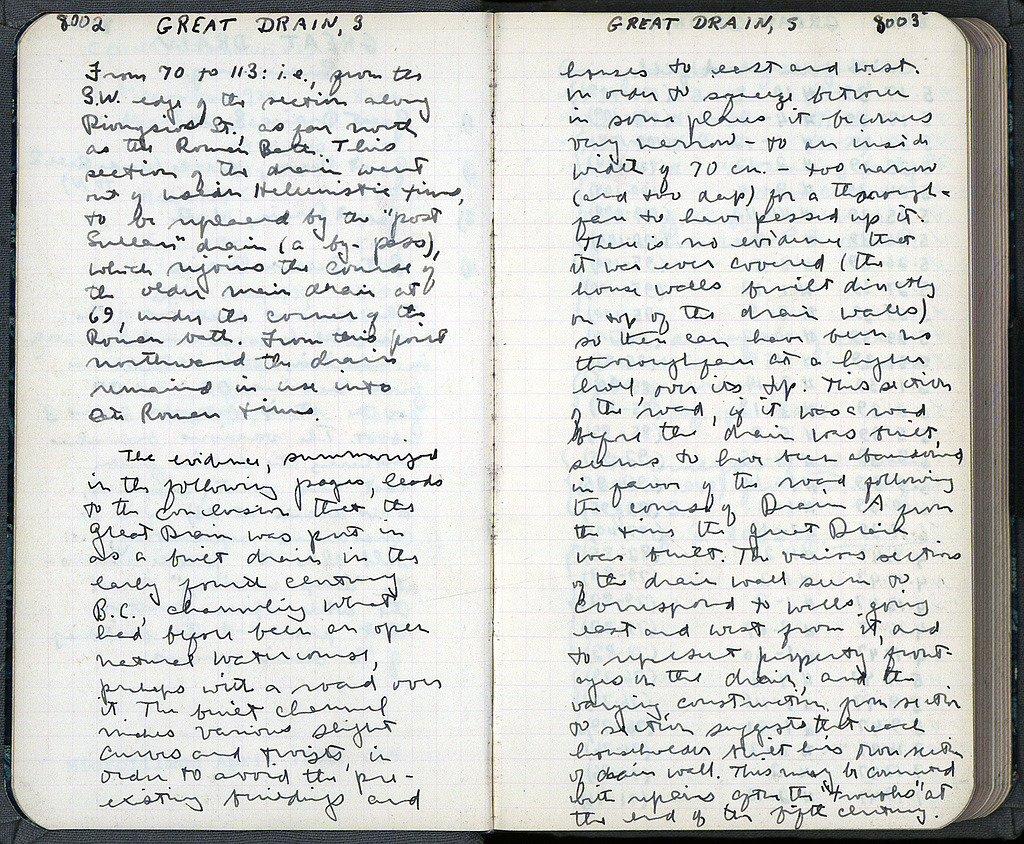 8002 GREAT DRAIN, 3
From 70 to 113: i.e., from the
S.W. edge of the section along
Dionysios St., as far north
as the Roman Bath. This
section of the drain went
out of use in Hellenistic times,
to be replaced by the "post
Sullan" drain (a by-pass),
which rejoins the course of
the older main drain at
69, under the corner of the
Roman bath. From this point
northward the drain
remained in use into
Roman times.
The evidence, summarized
in the following pages, leads
to the conclusion that the
Great Drain was put in
as a built drain in the
early fourth century
B.C., channeling what
had before been an open
natural watercourse,
perhaps with a road over
it. The built channel
makes various slight
curves and twists, in
order to avoid the pre-
existing buildings and
GREAT DRAIN, 5 8003
houses to east and west.
In order to squeeze between
in some places it becomes
very narrow - to an inside
width of 70 cm. - too narrow
(and too deep) for a thorough-
fare to have passed up it.
There is no evidence that
it was ever covered (the
house walls built directly
on top of the drain walls)
so there can have been no
thoroughfare at a higher
level, over its top. This section
of the road, if it was a road
before the drain was built,
seems to have been abandoned
in favor of the road following
the course of Drain A from
the time the Great Drain
was built. The various sections
of the drain wall seem to
correspond to walls going
east and west from it, and
to represent property front-
ages in the drain; and the
varying construction from section
to section suggests that each
householder built his own section
of drain wall. This may be connected
with repairs after the "troubles" at
the end of the fifth century.